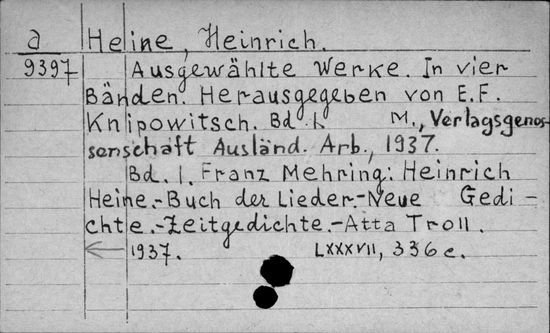 a Heine, Heinrich.
9397 Ausgewählte Werke. In vier
Bänden. Herausgegeben von E.F.
Knipowitsch. Bd. I. M., Verlagsgenos-
senschaft Ausländ. Arb., 1937.
Bd. I. Franz Mehring: Heinrich
Heine.-Buch der Lieder.-Neue Gedi-
chte.-Zeitgedichte.-Atta Troll.
1937. LXXXVII, 336 c.